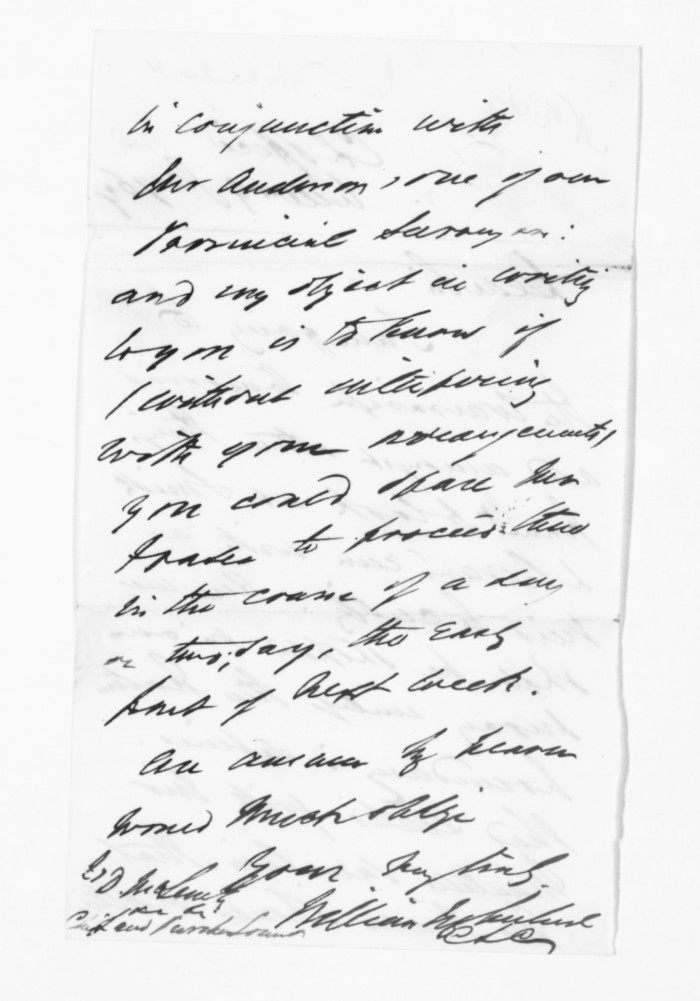 in conjunction with
Mr Anderson, one of our
Provincial Surveyors:
and my object in writing
to you is to know if
(without interfering
with your arrangements)
you could spare Mr
to proceed
in the course of a day
or two, say, the early
part of next week.
An answer by bearer
would much oblige
Yours very truly,
D. McLean
William
Chief Land Purchase Commr